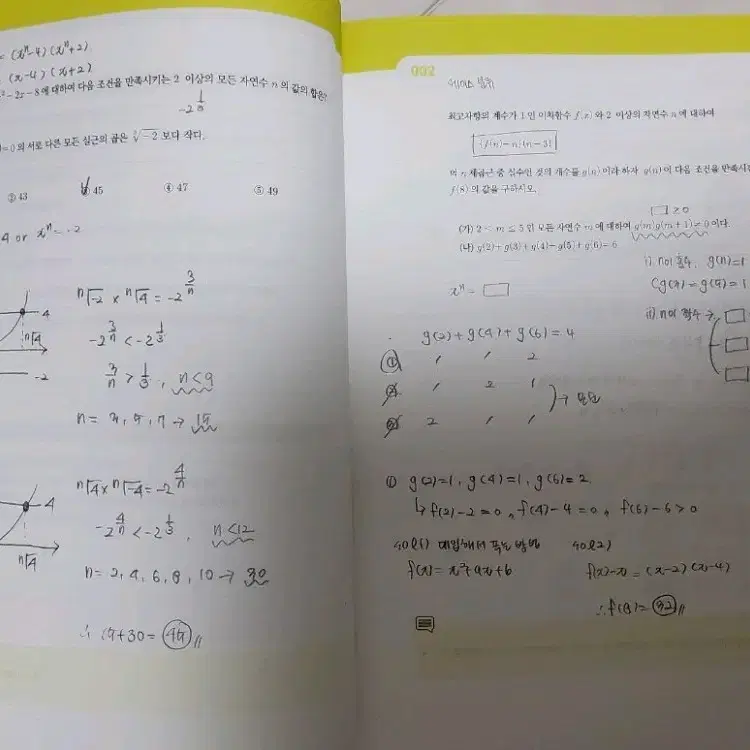 = (xⁿ-4)(xⁿ+2)
(x-4)(x+2)
²-2x-8에 대하여 다음 조건을 만족시키는 2 이상의 모든 자연수 n의 값의 합은?
-2^(1/3)
=0의 서로 다른 모든 실근의 곱은 ∛-2 보다 작다.
② 43
③ 45
④ 47
⑤ 49
4 or xⁿ=-2
4
ⁿ√4
-2
ⁿ√-2 × ⁿ√4 = -2^(3/n)
-2^(3/n) < -2^(1/3)
3/n > 1/3, n<9
n = 3, 5, 7 → 15
4
ⁿ√4
ⁿ√4 × ⁿ√-4 = -2^(4/n)
-2^(4/n) < -2^(1/3), n<12
n = 2, 4, 6, 8, 10 → 30
∴ 15+30 = 45
002
최고차항의 계수가 1인 이차함수 f(x)와 2 이상의 자연수 n에 대하여
(f(n)-n)(n-3)
의 n제곱근 중 실수인 것의 개수를 g(n)이라 하자. g(n)이 다음 조건을 만족시
f(8)의 값을 구하시오.
□≥0
(가) 2<m≤5인 모든 자연수 m에 대하여 g(m)g(m+1)≠0이다.
(나) g(2)+g(3)+g(4)+g(5)+g(6)=6
i) n이 홀수, g(n)=1
xⁿ = □
g(2)+g(4)+g(6)=4
① 1 1 2
② 1 2 1
③ 2 1 1
→ 모순
① g(2)=1, g(4)=1, g(6)=2
↳ f(2)-2=0, f(4)-4=0, f(6)-6>0
sol1) 대입해서 푸는 방법
sol2)
f(x)=x²+ax+b
f(x)-x = (x-2)(x-4)
∴ f(8)=32